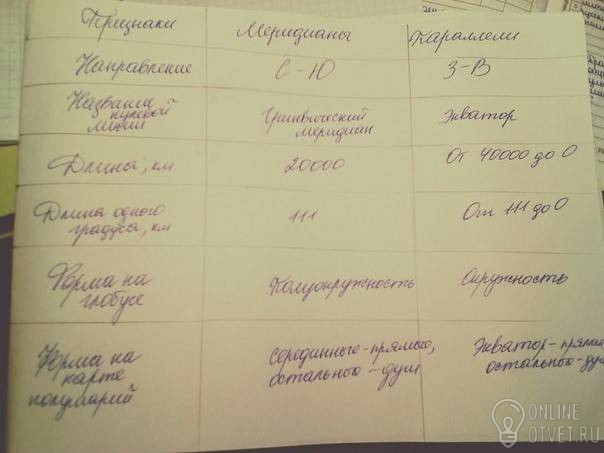 Признаки Меридианы Параллели
Направление С-Ю З-В
Название
нулевой
линии
Гринвический
меридиан
Экватор
Длина, км 20000 От 40000 до 0
Длина одного
градуса, км
111 От 111 до 0
Форма на
глобусе
Полуокружность Окружность
Форма на
карте
полушарий
Серединные-прямые,
остальные-дуги
Экватор-прямая
остальные-дуги
ONLINE
OTVET.RU